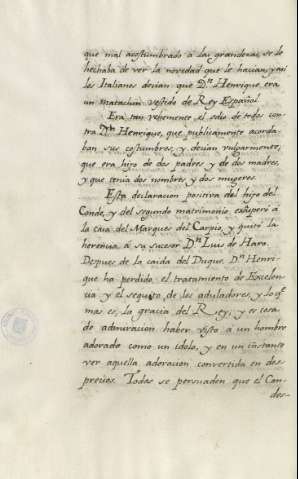 que mal acostumbrado á las grandezas, se le
hechaba de ver la novedad que le havian, y asi
los Italianos decian que Dn. Henrique era
un matachin vestido de Rey Español.
Era tan vehemente el odio de todos con
tra Dn. Henrique, que publicamente acorda
ban sus costumbres, y decian vulgarmente,
que era hijo de dos padres y de dos madres,
y que tenia dos nombres y dos mugeres.
Esta declaracion positiva del hijo del
Conde, y del segundo matrimonio, exâsperó á
la casa del Marques del Carpio, y quitó la
herencia á su sucesor Dn. Luis de Haro.
Despues de la caida del Duque Dn. Henri-
que ha perdido el tratamiento de Excelen-
cia y el sequito de los aduladores, y lo qe.
mas es, la gracia del Rey, y es cosa
de admiracion haber visto á un hombre
adorado como un idolo, y en un instante
ver aquella adoracion convertida en des-
precios. Todos se persuaden que el Con-
des-